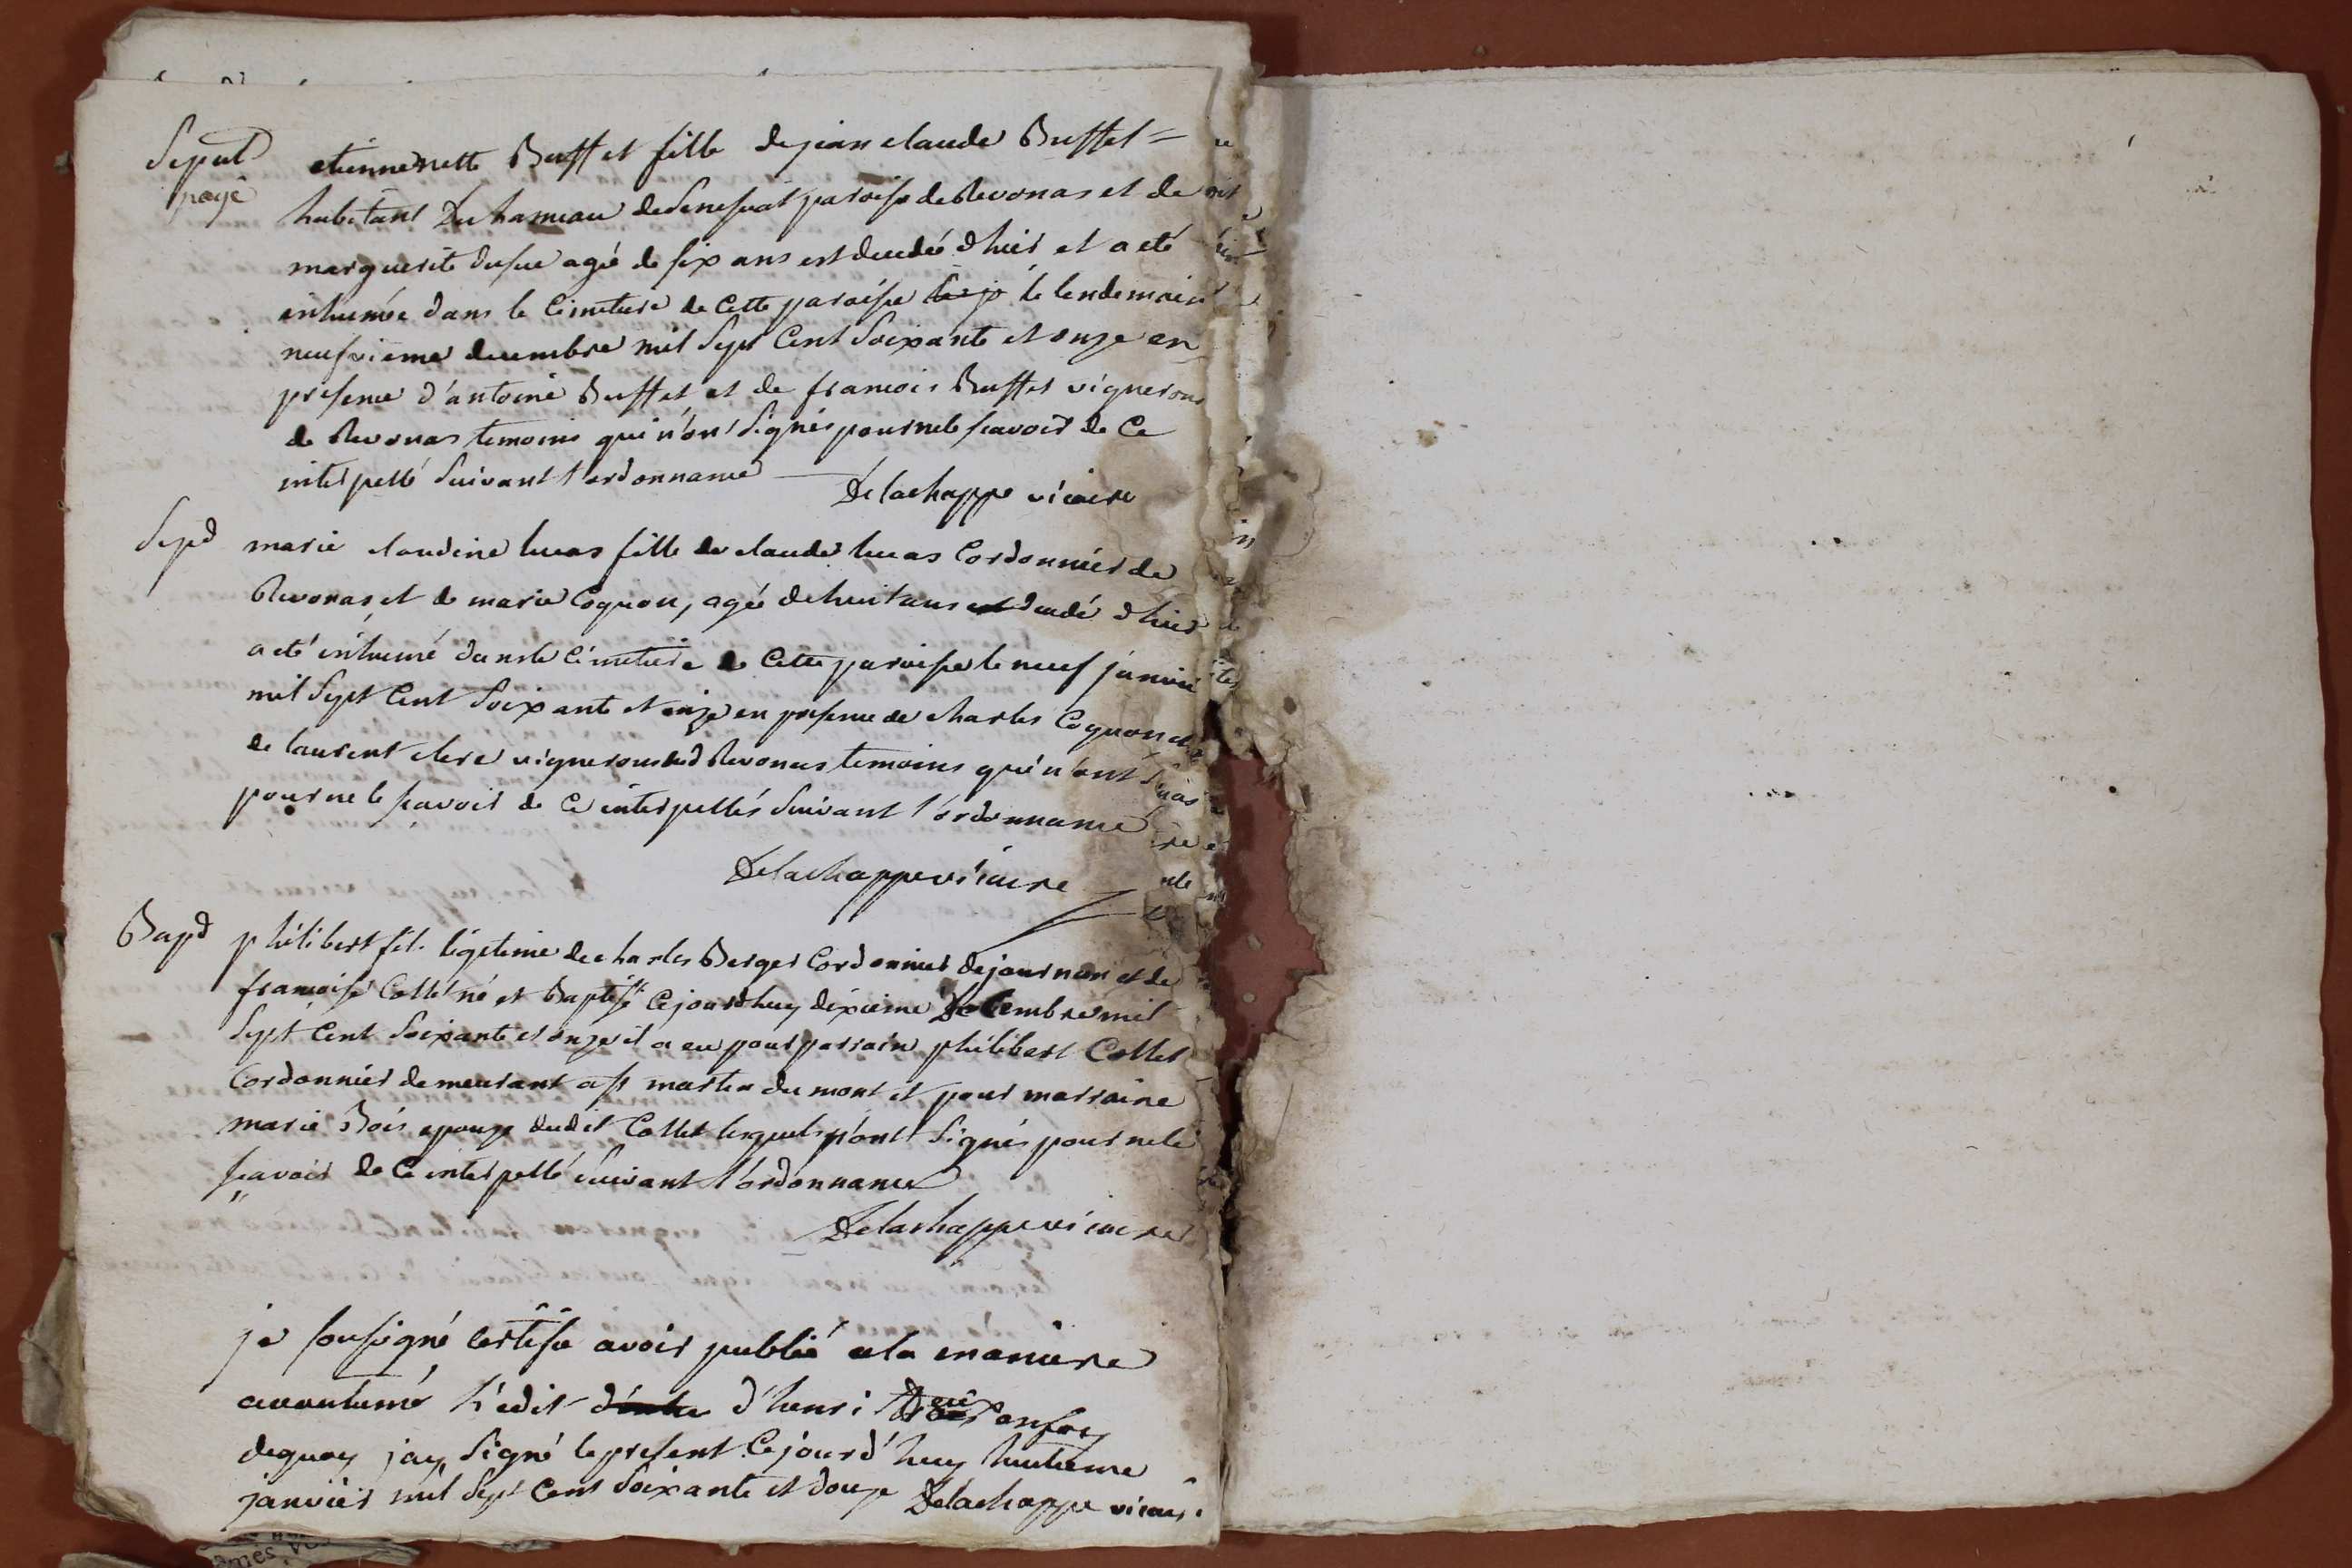 Sepul
payé
etiennenette Buffet fille de jean claude Buffet =
habitant Du hameau de Senessiat paroisse de Revonas et de
marguerite dufue agé de six ans est decedée d'hier et a eté
inhumée dans le Cimetiere de Cette paroisse le jo le lendemain
neufvieme decembre mil Sept Cent Soixante et onze en
presence d'antoine Buffet et de francois Buffet vignerons
de Revonas temoins qui n'ont Signés pour ne le scavoir de Ce
interpellé Suivant l'ordonnance Delachappe vicaire
Sepd
marie claudine lucas fille de claude lucas Cordonnier de
Revonas et de marie Coquon, agée de huit ans est decedé d'hier
a eté inhumé dans le Cimetiere de Cette paroisse le neuf janvier
mil Sept Cent Soixante et onze en presence de charles Coquon et
de laurent clere vignerons dud Revonas temoins qui n'ont
pour ne le scavoir de Ce interpellés Suivant l'ordonnance
Delachappe vicaire
Bapd
philibert fils légitime de charles Berger Cordonnier de journan et de
francoise Collet né et Baptisé Cejourdhuy dixieme Decembre mil
Sept Cent Soixante et onze il a eu pour parrain philibert Collet
Cordonnier demeurant a st martin du mont et pour marraine
marie Bois epouze dudit Collet lesquels n'ont Signés pour ne le
scavoir de Ce interpellé Suivant l'ordonnance
Delachappe vicaire
je soussigné certifie avoir publié a la maniere
accoutumé l'édit d'henri Deux en foy
dequoy jay Signé le present Cejourd'huy huitieme
janvier mil Sept Cent Soixante et douze Delachappe vicaire